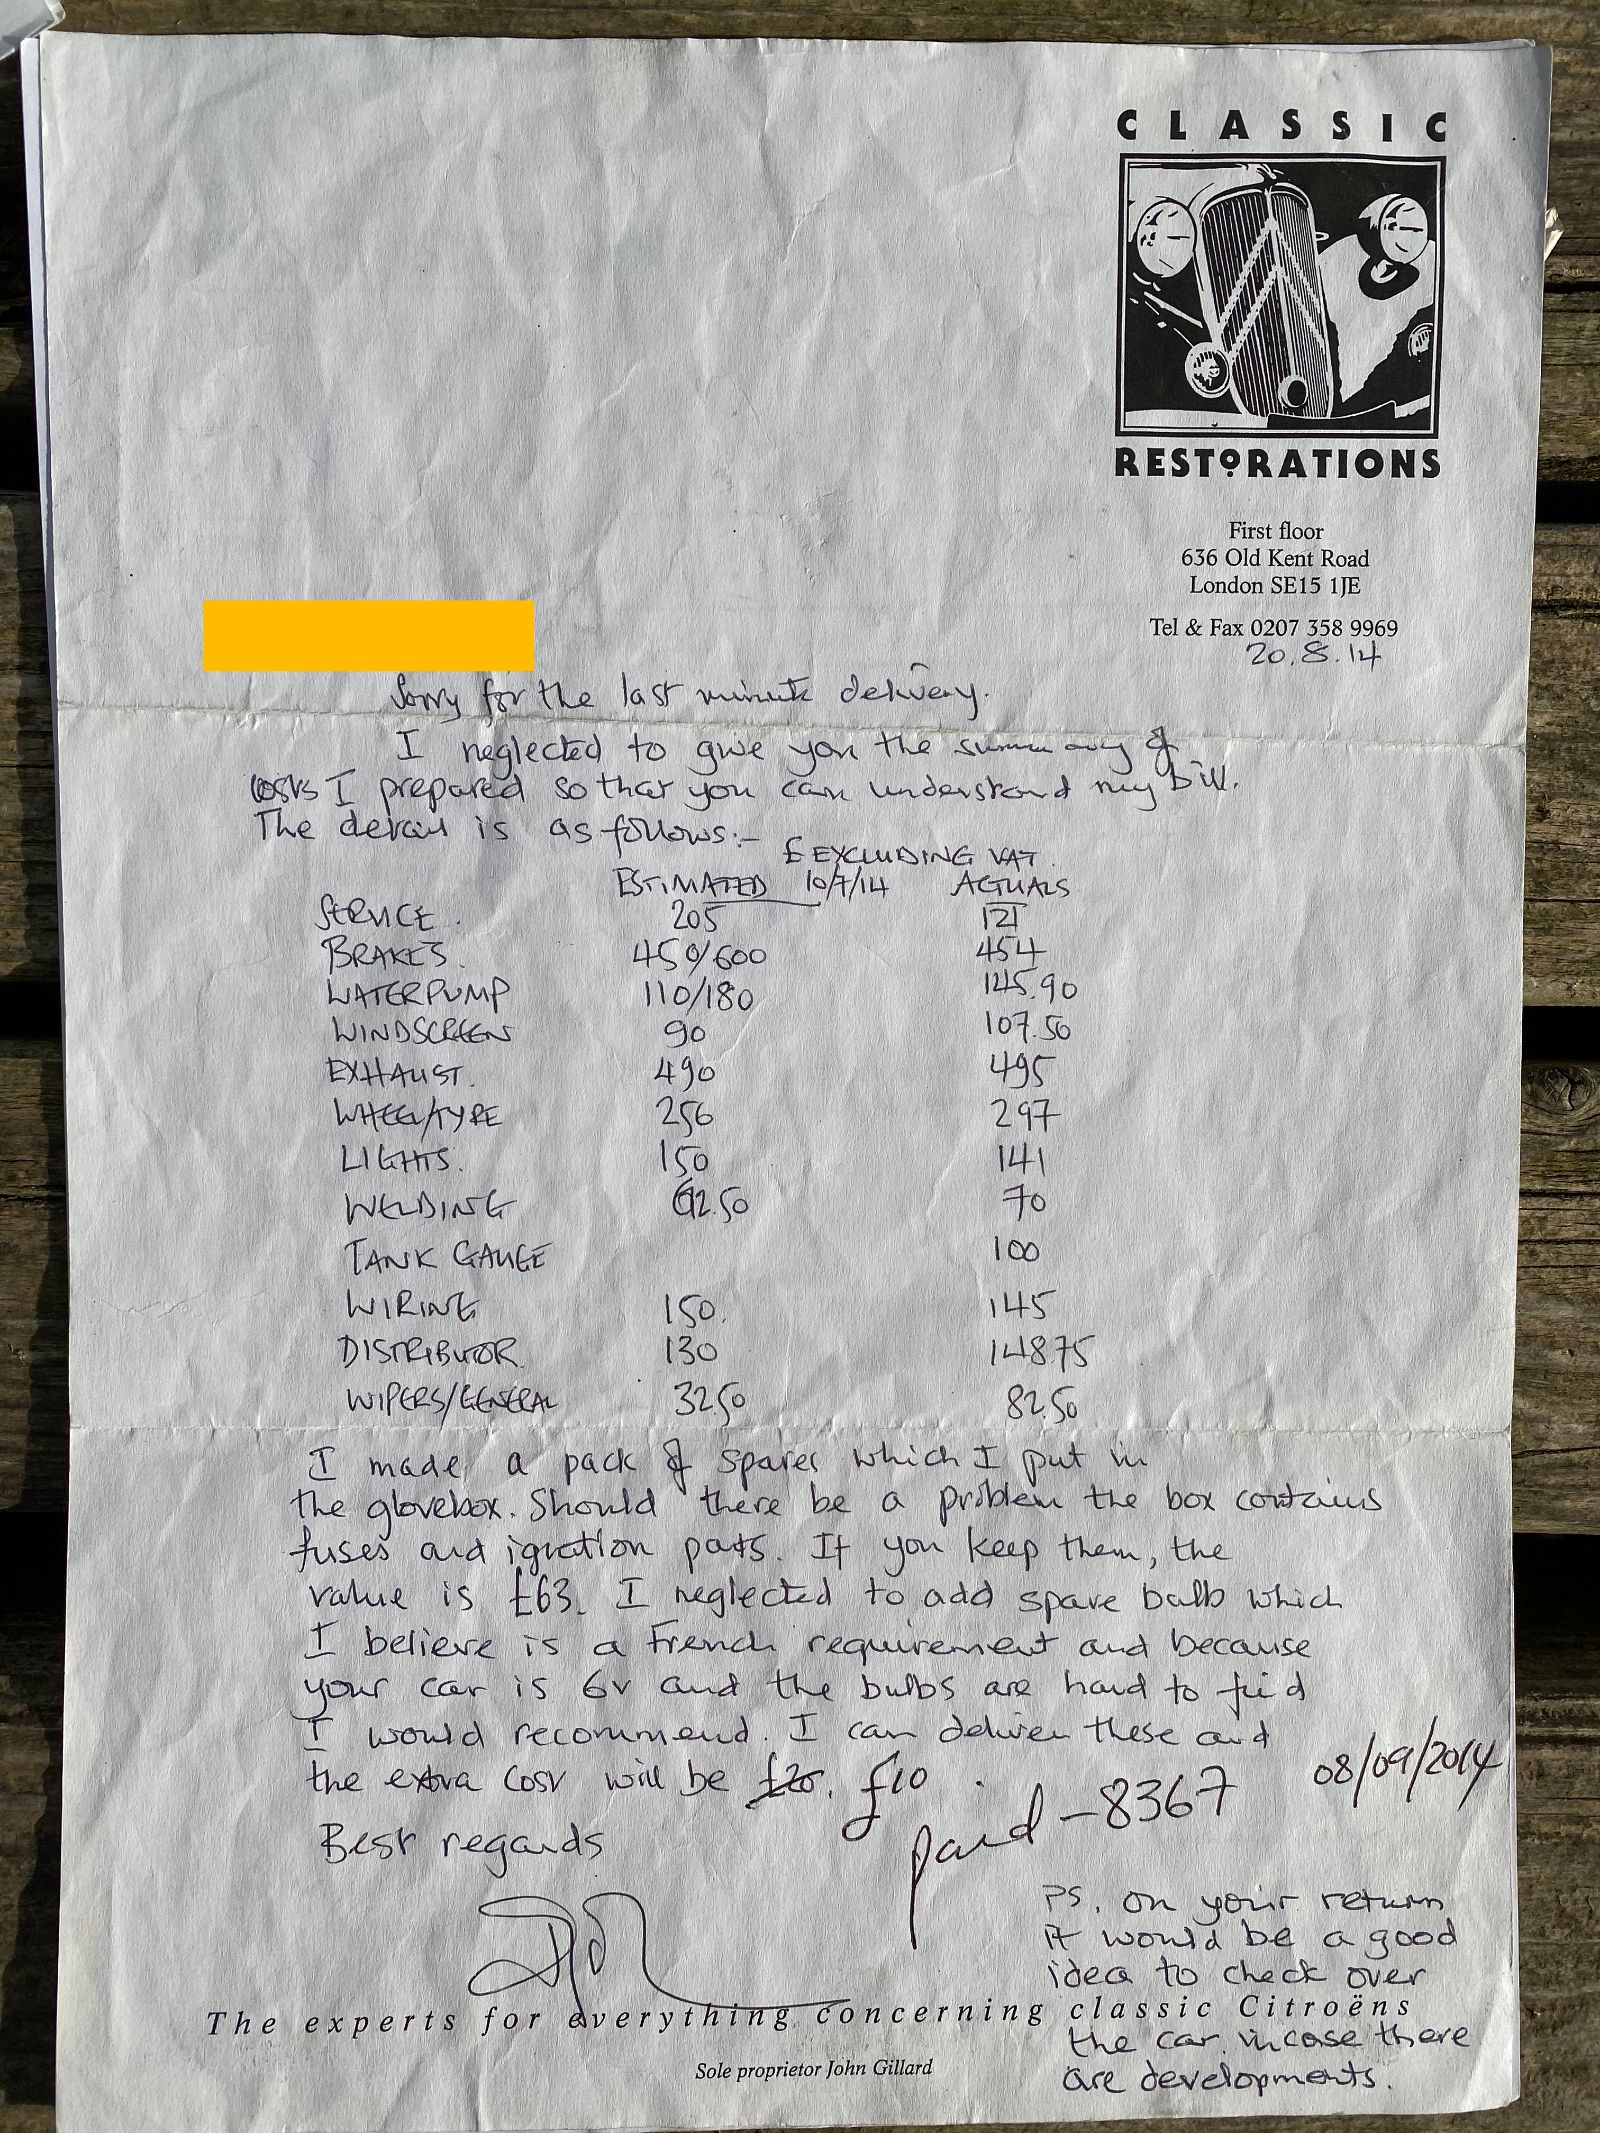 CLASSIC
RESTORATIONS
First floor
636 Old Kent Road
London SE15 1JE
Tel & Fax 0207 358 9969
20.8.14
Sorry for the last minute delivery.
I neglected to give you the summary of
costs I prepared so that you can understand my bill.
The detail is as follows:-
£ EXCLUDING VAT.
ESTIMATED 10/7/14 ACTUALS
SERVICE. 205 121
BRAKES. 450/600 454
WATERPUMP 110/180 145.90
WINDSCREEN 90 107.50
EXHAUST. 490 495
WHEEL/TYRE 256 297
LIGHTS. 150 141
WELDING 62.50 70
TANK GAUGE 100
WIRING 150. 145
DISTRIBUTOR 130 148.75
WIPERS/GENERAL 32.50 82.50
I made a pack of spares which I put in
the glovebox. Should there be a problem the box contains
fuses and ignition parts. If you keep them, the
value is £63. I neglected to add spare bulb which
I believe is a French requirement and because
your car is 6v and the bulbs are hard to find
I would recommend. I can deliver these and
the extra cost will be £20. £10.
paid - 8367 08/09/2014
Best regards
PS. on your return
it would be a good
idea to check over
the car incase there
are developments.
The experts for everything concerning classic Citroëns
Sole proprietor John Gillard